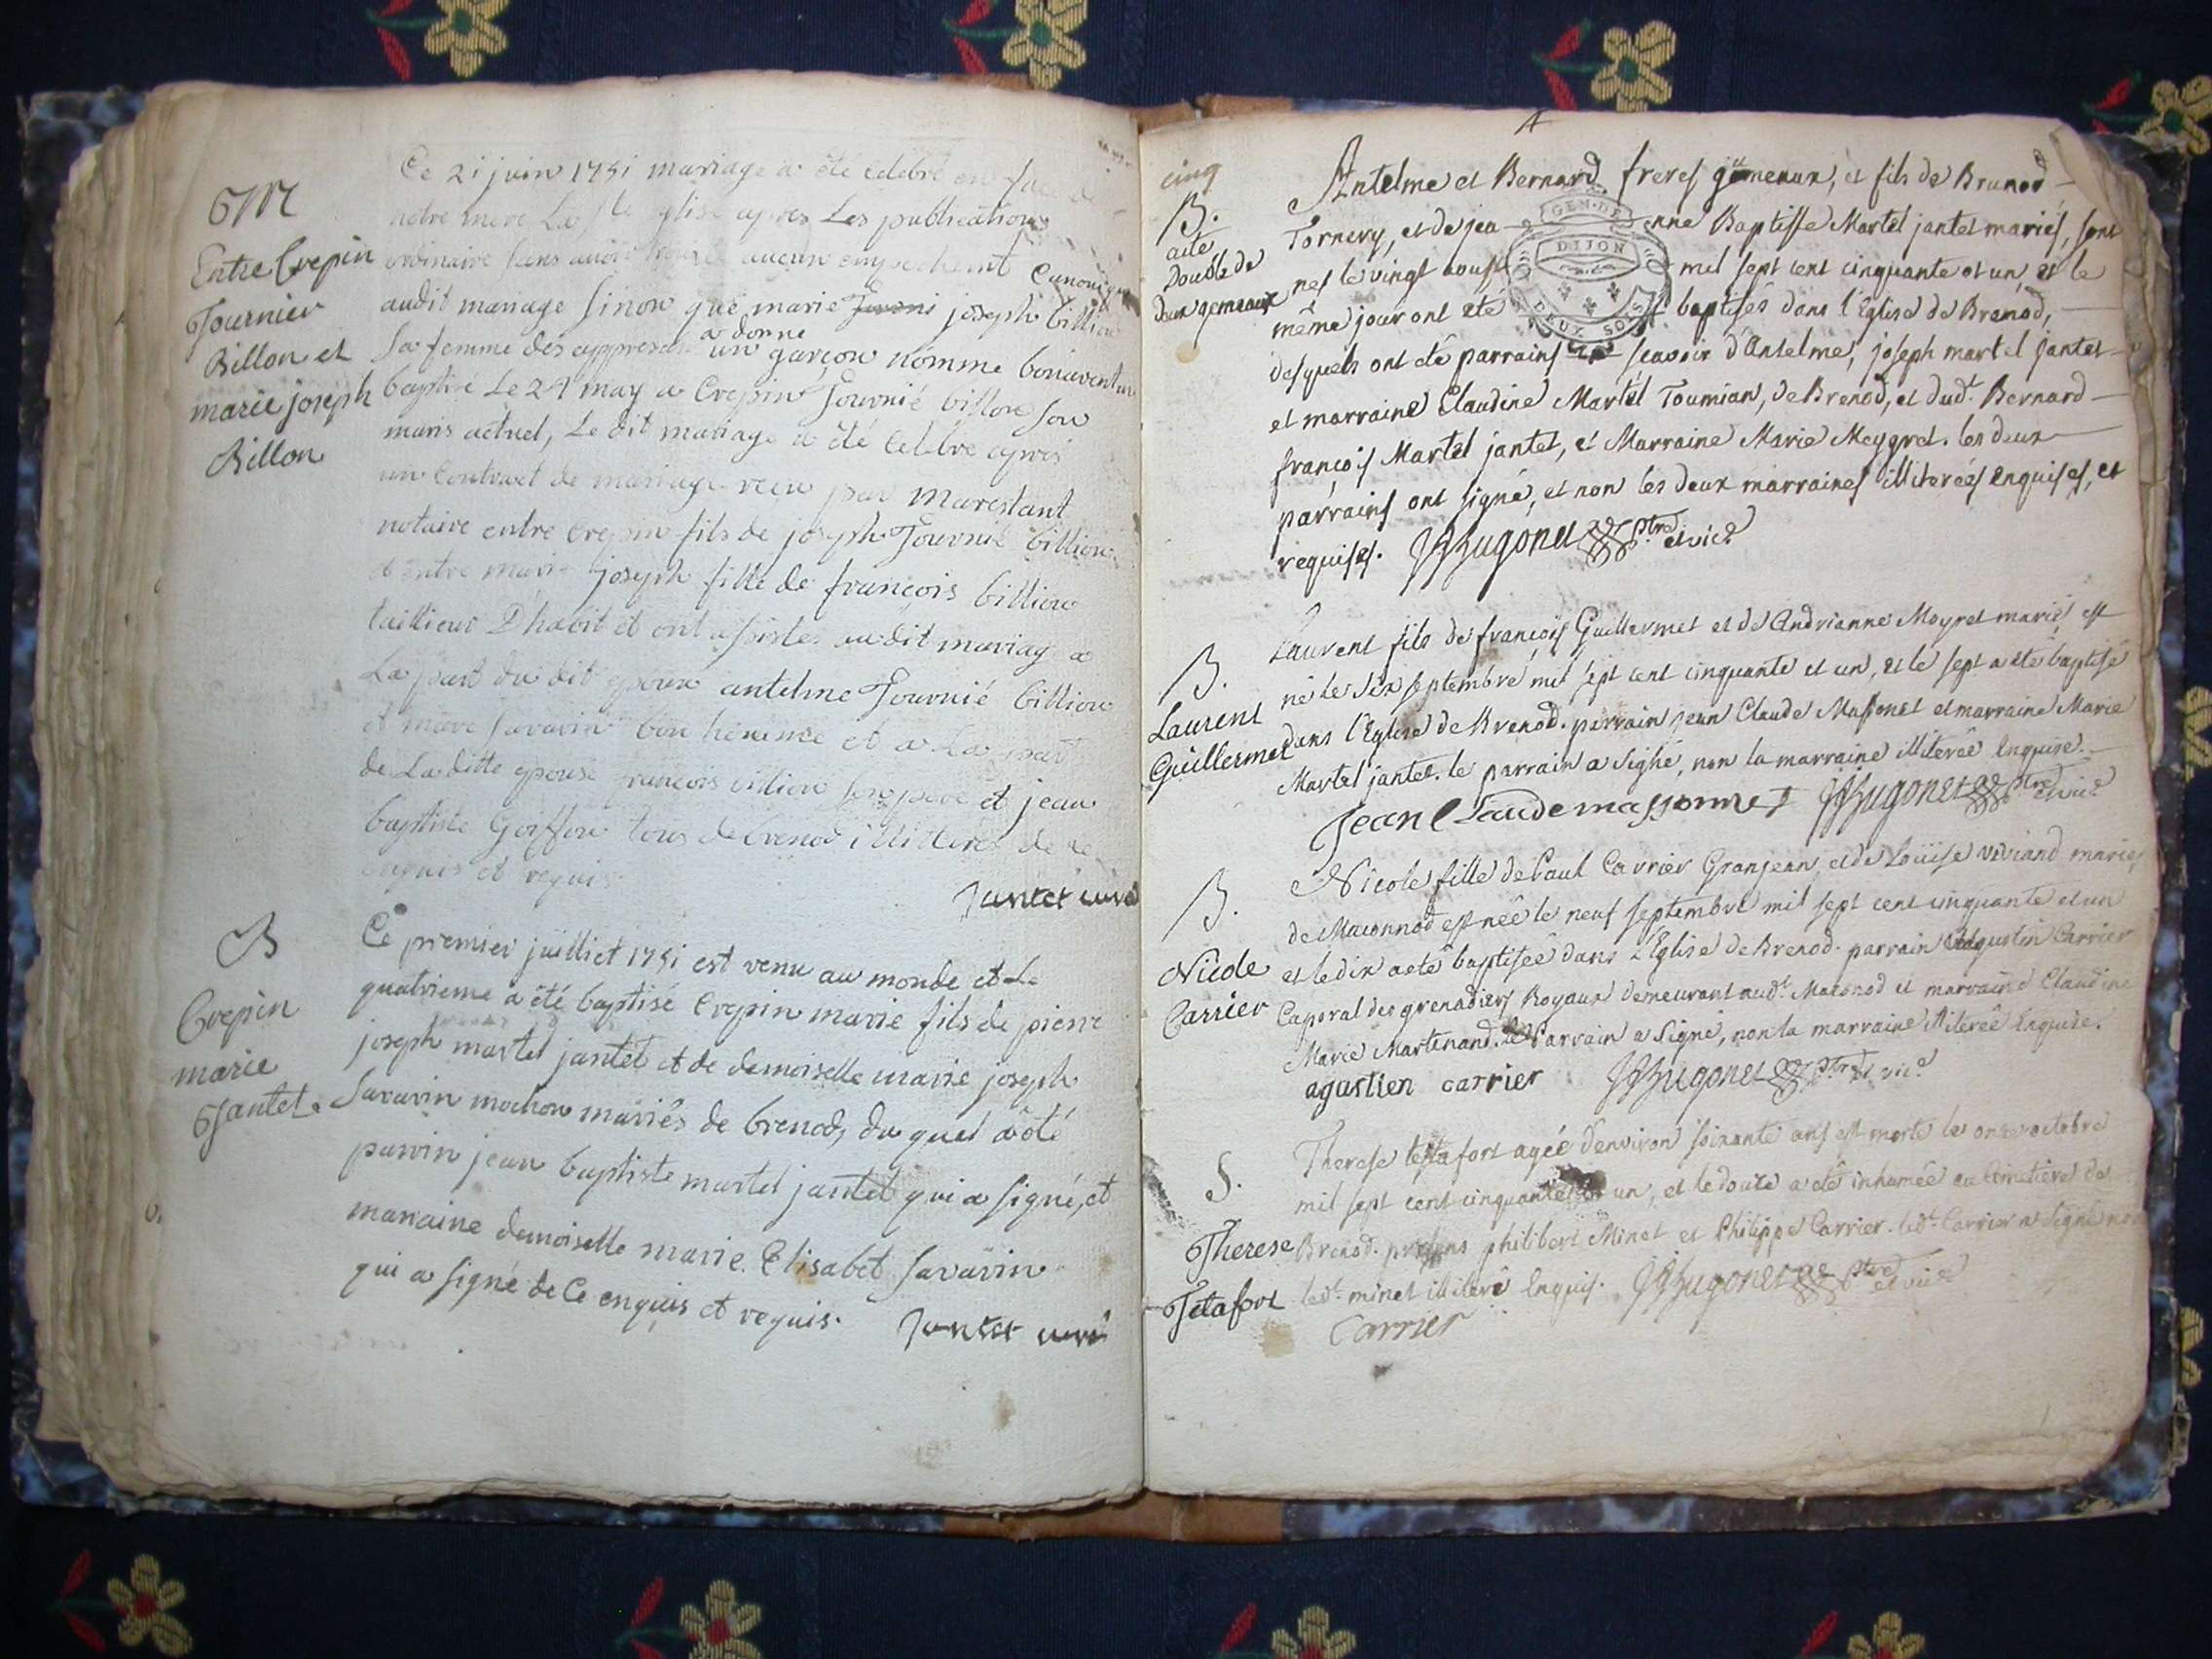 M
Entre Crepin
Fournier
Billon et
marie joseph
Billon
Ce 21 juin 1751 mariage a été celebré en face de
notre mere La Ste eglise apres Les publications
ordinaire sans avoir trouvé aucun empechemt canonique
audit mariage sinon que marie joseph billion
a donne
sa femme des appresent un garçon nommé bonaventure
baptisé Le 24 may a Crepin Fournié billion son
maris actuel, Le dit mariage a été celebre apres
un contract de mariage reçu par marestant
notaire entre crepin fils de joseph Fournié billion
et entre marie joseph fille de françois billion
taillieur D'habit et ont assistes au dit mariage a
La part du dit epoux antelme Fournié billion
et savarin et a La part
de La ditte epouse francois billion son pere et jean
baptiste Goiffon tous de brenod illiterés de ce
enquis et requis
Jantet curé
B
Crepin
marie
Jantet.
Ce premier juilliet 1751 est venu au monde et Le
quatrieme a été baptisé Crepin marie fils de pierre
joseph martel jantet et de demoiselle marie joseph
Savarin mochon mariés de brenod, du quel a été
parrin jean baptiste martel jantet qui a signé, et
marraine demoiselle marie Elisabet savarin
qui a signé de Ce enquis et requis.
Jantet curé
cinq
B.
acte
Double de
deux gemeaux
Antelme et Bernard freres gemeaux, et fils de Brunod
Tornery, et de jeanne Baptiste Martel jantet mariés, sont
nes le vingt aoust mil sept cent cinquante et un, et le
GEN. DE
DIJON
DEUX SOLS
même jour ont eté baptisés dans l'Eglise de Brenod,
desquels ont été parrains sçavoir d'Antelme, joseph martel jantet
et marraine Claudine Martel Toumian, de Brenod, et dud.t Bernard
françois Martel jantet, et Marraine Marie Meygret. les deux
parrains ont signé, et non les deux marraines illiterées enquises, et
requises. Hugonet ptre et vic.e
B.
Laurent
Guillermet
Laurent fils de françois Guillermet et de Andrianne Moyret mariés est
né le six septembre mil sept cent cinquante et un, et le sept a eté baptisé
dans l'Eglise de Brenod. parrain jean Claude Massonet et marraine Marie
Martel jantet. le parrain a signé, non la marraine illiterée enquise.
Jean Claude massonnet Hugonet ptre et vic.e
B.
Nicole
Carrier
Nicole fille de Paul Carrier Granjean, et de Loüise viviand mariés
de Maconnod est née le neuf septembre mil sept cent cinquante et un
et le dix a eté baptisée dans l'Eglise de Brenod. parrain Augustin Carrier
Caporal des grenadiers Royaux demeurant aud.t Maconod et marraine Claudine
Marie Martinand. le Parrain a signé, non la marraine illiterée enquise.
agustien carrier Hugonet ptre et vic.e
S.
Therese
Tetafort
Therese testafort agée d'environ soixante ans est morte le onze octobre
mil sept cent cinquante et un, et le douze a eté inhumée au cimetiere de
Brenod. presens philibert Minet et Philippe Carrier. led.t Carrier a signé non
led.t minet illiteré enquis. Hugonet ptre et vic.e
Carrier